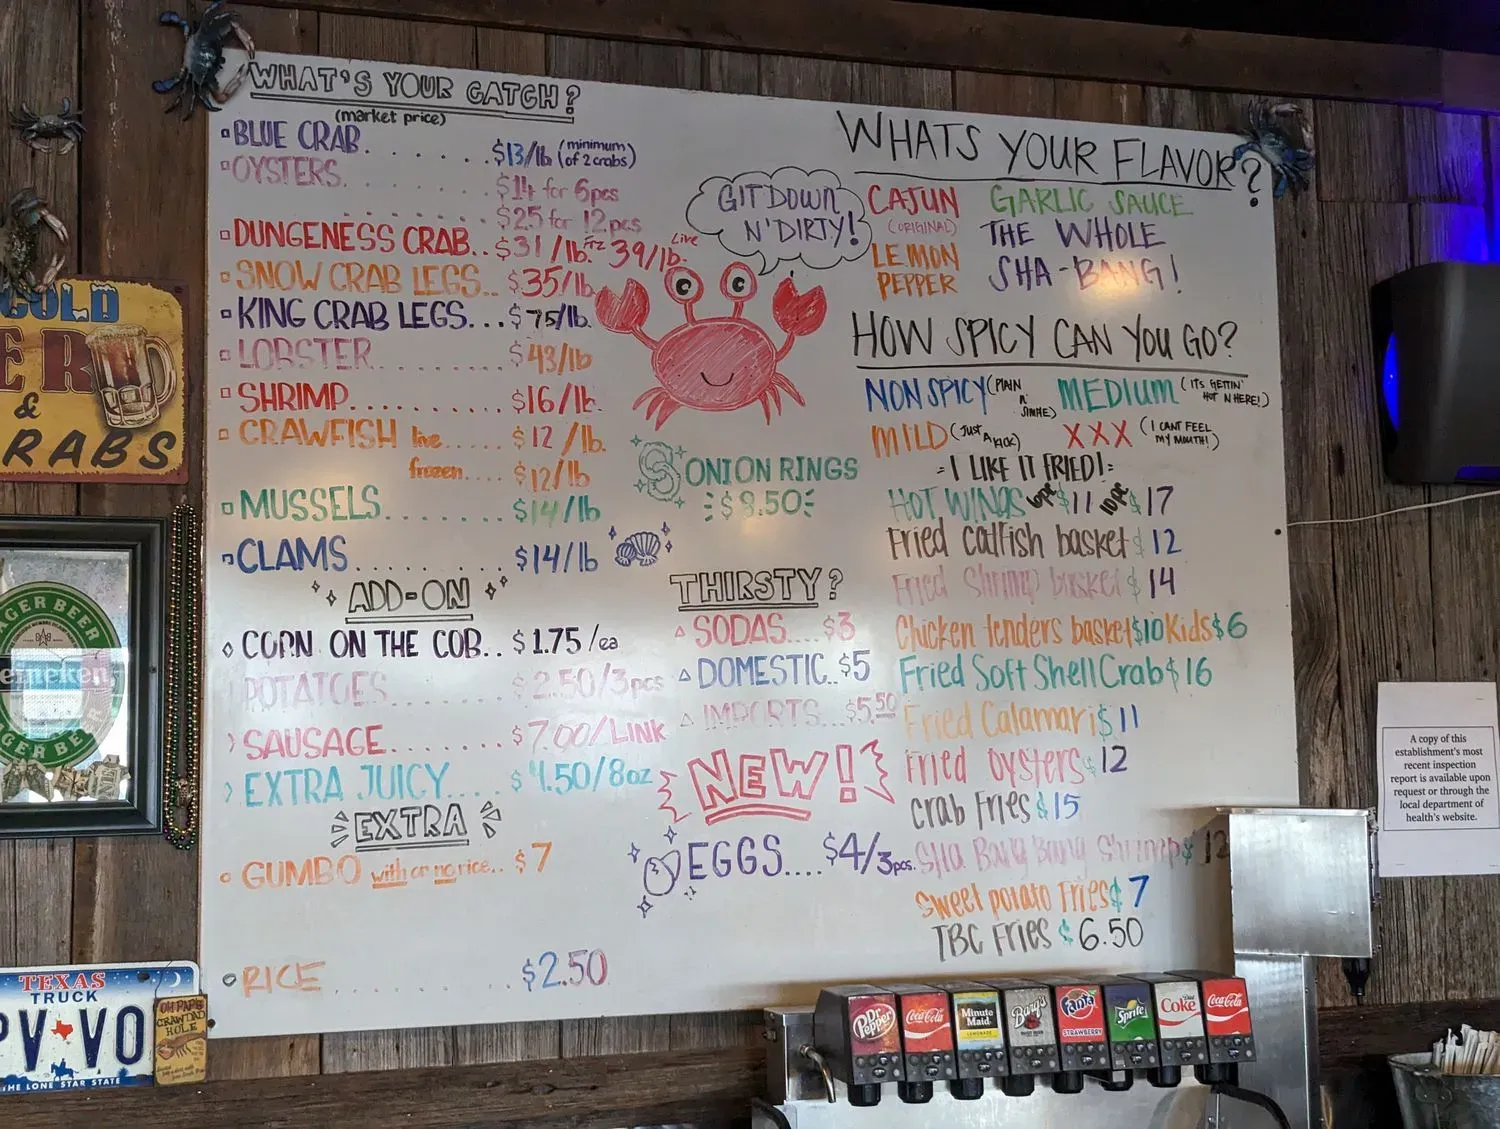 WHAT'S YOUR CATCH?
(market price)
BLUE CRAB....... $13/lb (minimum of 2 crabs)
OYSTERS....... $14 for 6pcs
....... $25 for 12pcs
DUNGENESS CRAB.. $31/lb. Frz 39/lb. Live
SNOW CRAB LEGS.. $35/lb
KING CRAB LEGS... $75/lb.
LOBSTER....... $43/lb
SHRIMP.......... $16/lb.
CRAWFISH live..... $12/lb.
frozen..... $12/lb
MUSSELS....... $14/lb
CLAMS.......... $14/lb
ADD-ON
CORN ON THE COB.. $1.75/ea
POTATOES....... $2.50/3pcs
SAUSAGE....... $7.00/LINK
EXTRA JUICY.... $4.50/8oz
EXTRA
GUMBO with or no rice.. $7
RICE......... $2.50
GIT DOWN
N' DIRTY!
ONION RINGS
$8.50
THIRSTY?
SODAS.... $3
DOMESTIC.. $5
IMPORTS... $5.50
NEW!
EGGS.... $4/3pcs.
WHATS YOUR FLAVOR?
CAJUN GARLIC SAUCE
(ORIGINAL) THE WHOLE
LEMON SHA-BANG!
PEPPER
HOW SPICY CAN YOU GO?
NON SPICY (PLAIN N' SIMPLE) MEDIUM (ITS GETTIN' HOT N HERE!)
MILD (JUST A KICK) XXX (I CANT FEEL MY MOUTH!)
I LIKE IT FRIED!
HOT WINGS 6pc $11 10pc $17
Fried catfish basket $12
Fried Shrimp basket $14
Chicken tenders basket $10 Kids $6
Fried Soft Shell Crab $16
Fried Calamari $11
Fried oysters $12
crab Fries $15
Sha Bang Bang Shrimp $12
Sweet potato Fries $7
TBC Fries $6.50
COLD
&
TEXAS
TRUCK
PV VO
THE LONE STAR STATE
CRAWDAD
HOLE
A copy of this
establishment's most
recent inspection
report is available upon
request or through the
local department of
health's website.
Dr Pepper
Coca-Cola
Minute Maid
LEMONADE
Barq's
Fanta
STRAWBERRY
Sprite
Diet Coke
Coca-Cola